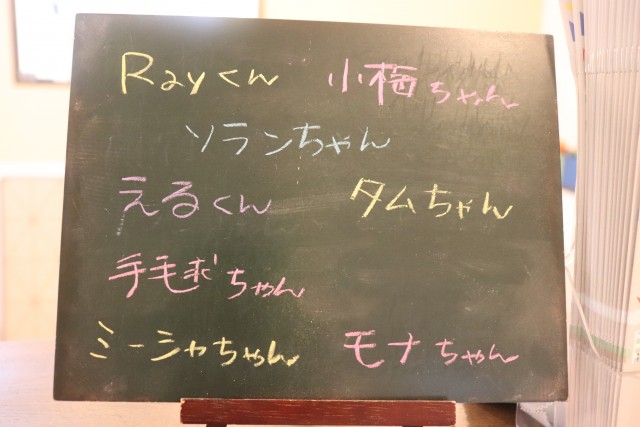 Rayくん 小梅ちゃん
ソランちゃん
えるくん タムちゃん
手毛ぎちゃん
ミーシャちゃん モナちゃん